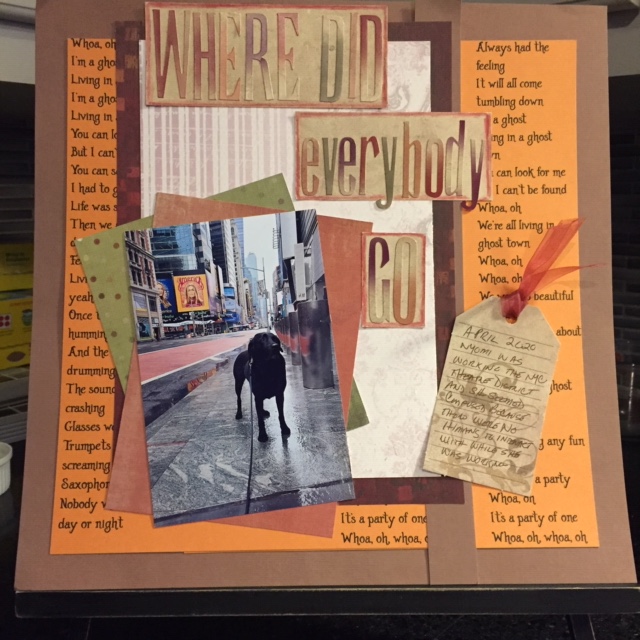 WHERE DID
everybody
GO
Whoa, oh
I'm a gho
Living in
I'm a gho
Living in
You can lo
But I can'
You can s
I had to g
Life was s
Then we
Fe
Livi
yeah
Once
hummin
And the
drumming
The sound
crashing
Glasses w
Trumpets
screaming
Saxophon
Nobody
day or night
It's a party of one
Whoa, oh, whoa, o
Always had the
feeling
It will all come
tumbling down
a ghost
ing in a ghost
wn
can look for me
I can't be found
Whoa, oh
We're all living in
ghost town
Whoa, oh
Whoa, oh
beautiful
about
ghost
g any fun
a party
Whoa, oh
It's a party of one
Whoa, oh, whoa, oh
APRIL 2020
NYOMI WAS
WORKING THE NYC
THEATRE DISTRICT
AND SHE SEEMED
CONFUSED BECAUSE
THERE WERE NO
HUMANS TO INTERACT
WITH WHILE SHE
WAS WORKING